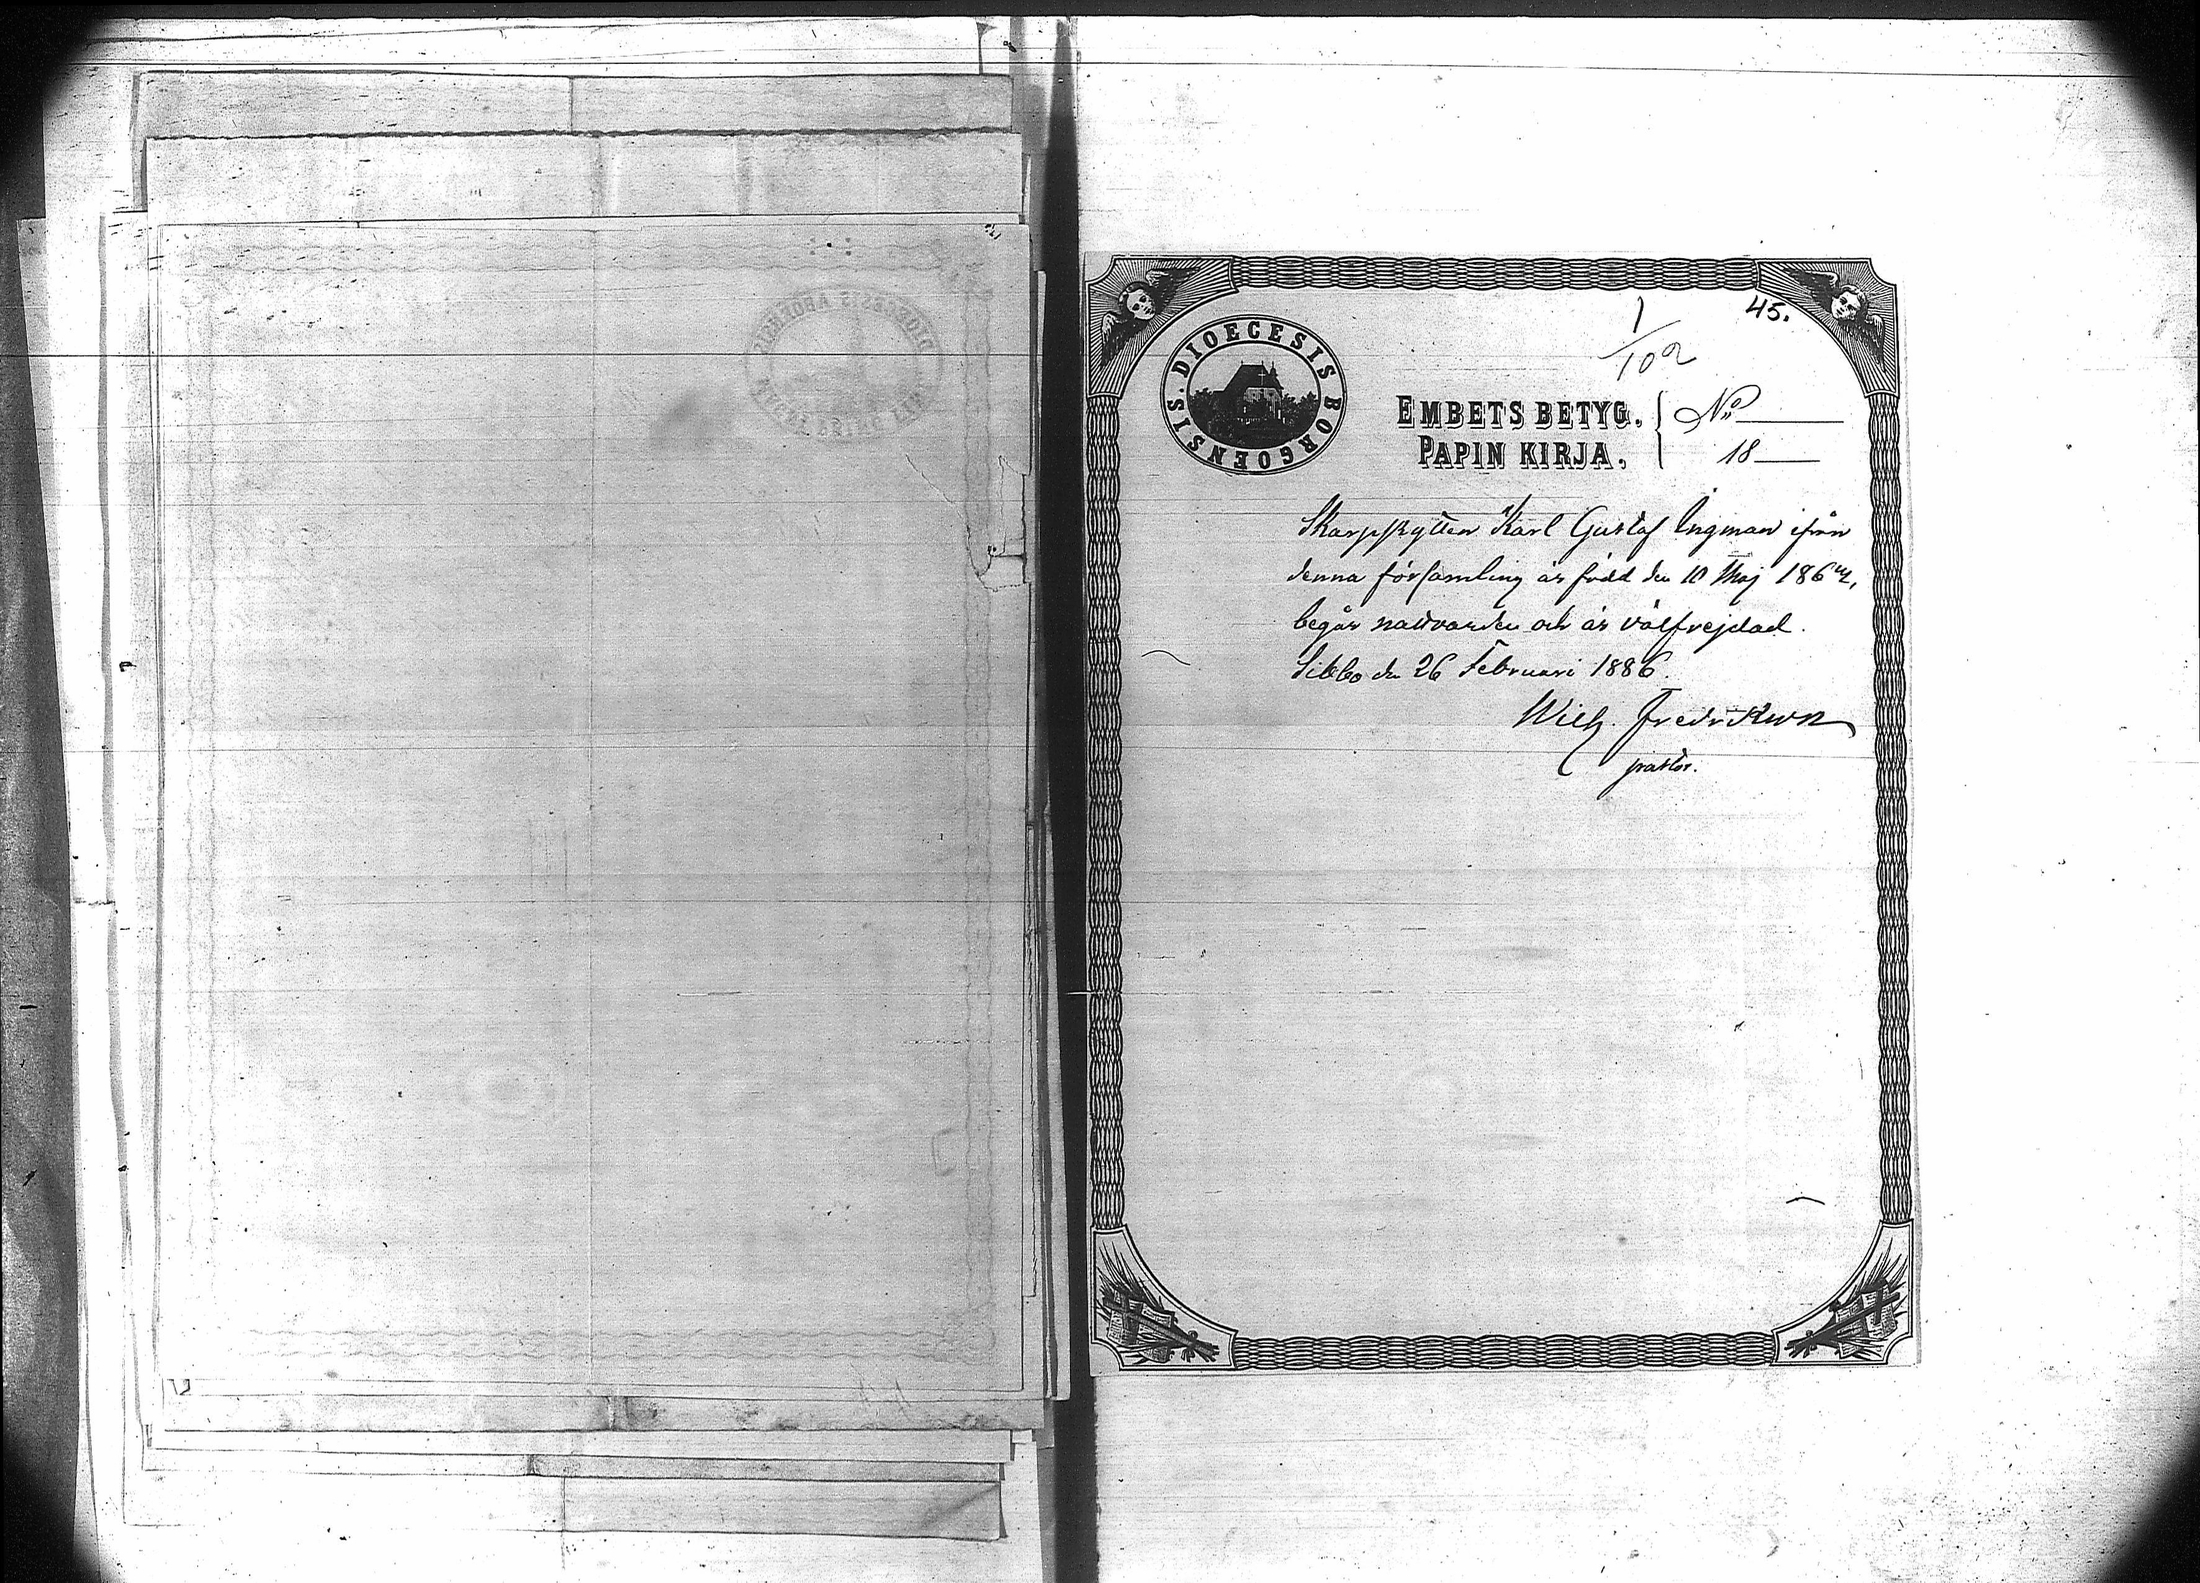 45.
1/102
DIOECESIS BORGOENSIS.
EMBETS BETYG. No
PAPIN KIRJA. 18
Skarpskytten Karl Gustaf Ingman ifrån
denna församling är född den 10 Maj 1864,
begår nattvarden och är välfrejdad.
Sibbo den 26 Februari 1886.
Wilh. Fredrikson
pastor.
DIOECESIS ABOENSIS